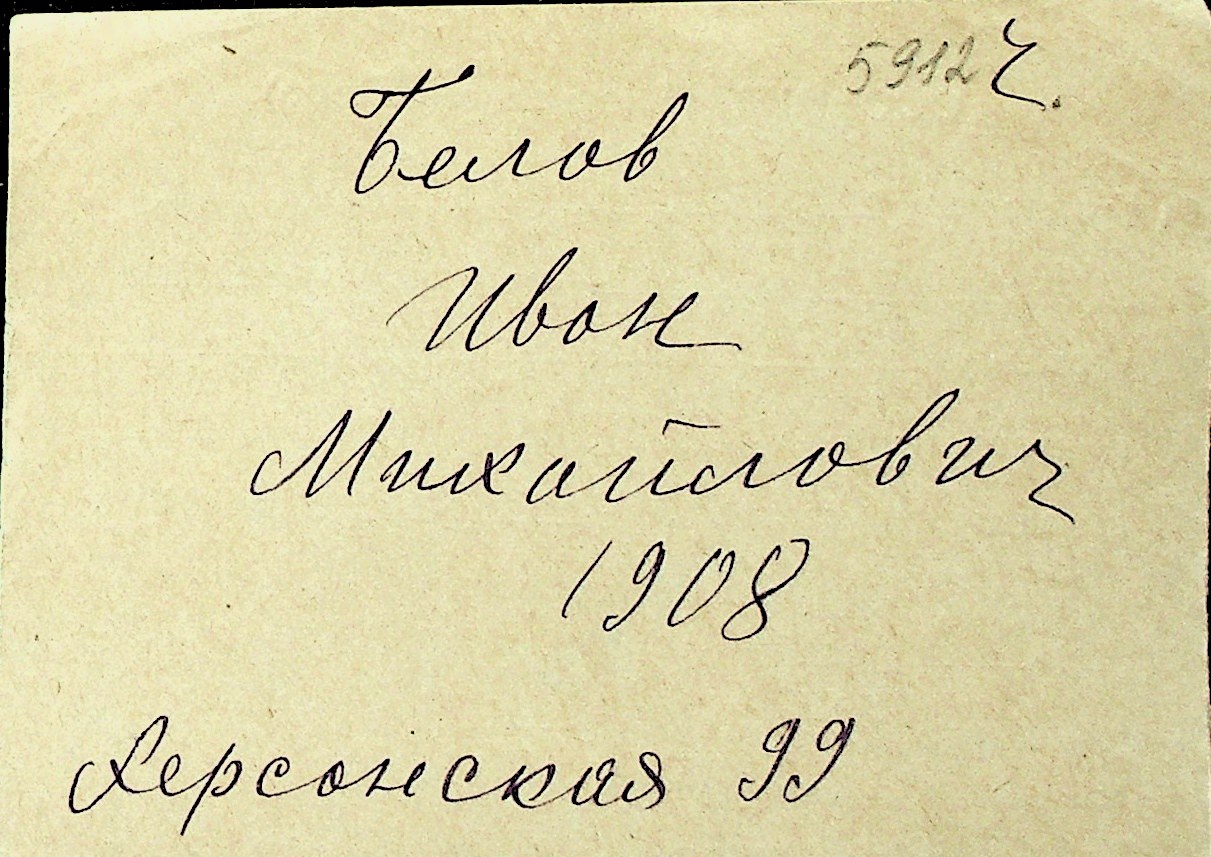 5912 ч.
Белов
Иван
Михайлович
1908
Херсонская 99